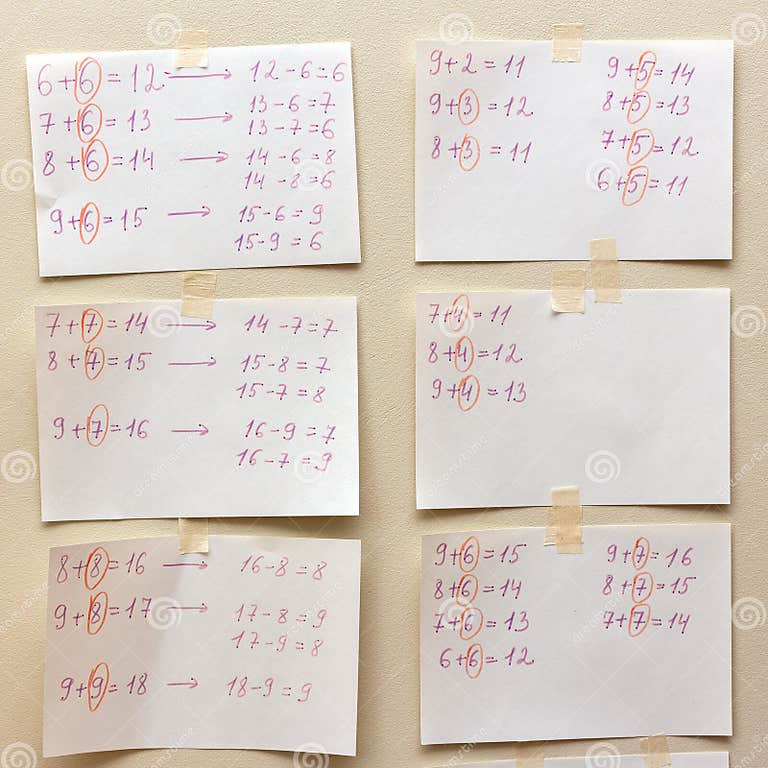 6+6=12 → 12-6=6
7+6=13 → 13-6=7
13-7=6
8+6=14 → 14-6=8
14-8=6
9+6=15 → 15-6=9
15-9=6
7+7=14 → 14-7=7
8+7=15 → 15-8=7
15-7=8
9+7=16 → 16-9=7
16-7=9
8+8=16 → 16-8=8
9+8=17 → 17-8=9
17-9=8
9+9=18 → 18-9=9
9+2=11
9+3=12
8+3=11
9+5=14
8+5=13
7+5=12
6+5=11
7+4=11
8+4=12
9+4=13
9+6=15
8+6=14
7+6=13
6+6=12
9+7=16
8+7=15
7+7=14